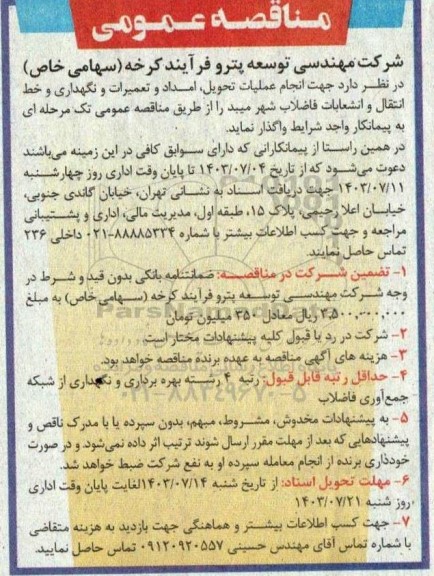 مناقصه عمومی
شرکت مهندسی توسعه پترو فرآیند کرخه (سهامی خاص)
در نظر دارد جهت انجام عملیات تحویل، امداد و تعمیرات و نگهداری و خط
انتقال و انشعابات فاضلاب شهر میبد را از طریق مناقصه عمومی تک مرحله ای
به پیمانکار واجد شرایط واگذار نماید.
در همین راستا از پیمانکارانی که دارای سوابق کافی در این زمینه می‌باشند
دعوت می‌شود که از تاریخ ۱۴۰۳/۰۷/۰۴ تا پایان وقت اداری روز چهارشنبه
۱۴۰۳/۰۷/۱۱ جهت دریافت اسناد به نشانی تهران، خیابان گاندی جنوبی،
خیابان اعلا رحیمی، پلاک ۱۵، طبقه اول، مدیریت مالی، اداری و پشتیبانی
مراجعه و جهت کسب اطلاعات بیشتر با شماره ۸۸۸۸۵۳۳۴-۰۲۱ داخلی ۲۳۶
تماس حاصل نمایند.
۱- تضمین شرکت در مناقصه: ضمانتنامه بانکی بدون قید و شرط در
وجه شرکت مهندسی توسعه پترو فرآیند کرخه (سهامی خاص) به مبلغ
۳,۵۰۰,۰۰۰,۰۰۰ ریال معادل ۳۵۰ میلیون تومان
۲- شرکت در رد یا قبول کلیه پیشنهادات مختار است.
۳- هزینه های آگهی مناقصه به عهده برنده مناقصه خواهد بود.
۴- حداقل رتبه قابل قبول: رتبه ۴ رسته بهره برداری و نگهداری از شبکه
جمع‌آوری فاضلاب
۵- به پیشنهادات مخدوش، مشروط، مبهم، بدون سپرده یا با مدرک ناقص و
پیشنهادهایی که بعد از مهلت مقرر ارسال شوند ترتیب اثر داده نمی‌شود. و در صورت
خودداری برنده از انجام معامله سپرده او به نفع شرکت ضبط خواهد شد.
۶- مهلت تحویل اسناد: از تاریخ شنبه ۱۴۰۳/۰۷/۱۴ لغایت پایان وقت اداری
روز شنبه ۱۴۰۳/۰۷/۲۱
۷- جهت کسب اطلاعات بیشتر و هماهنگی جهت بازدید به هزینه متقاضی
با شماره تماس آقای مهندس حسینی ۰۹۱۲۰۹۲۰۵۵۷ تماس حاصل نمایید.
۰۲۱-۸۸۳۴۹۶۷۰-۵